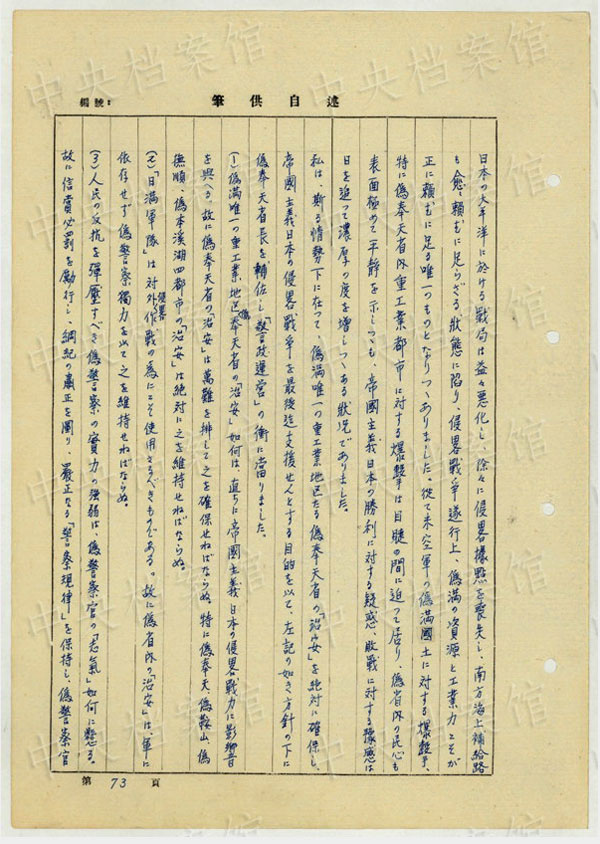 編號:
筆供自述
日本の太平洋に於ける戰局は益々悪化し、除々に侵畧據點を喪失し、南方海上補給路
も愈々頼むに足らざる狀態に陷り、侵畧戰爭遂行上、偽満の資源と工業力こそが
正に頼むに足る唯一のものとなりつゝありました。從て米空軍の偽満國土に対する爆擊、
特に偽奉天省内重工業都市に対する爆擊は目睫の間に迫って居り、偽省内の民心も
表面極めて平静を示しつゝも、帝國主義日本の勝利に対する疑惑、敗戰に対する豫感は
日を追って濃厚の度を増しつゝある狀況でありました。
私は、斯る情勢下に在って、偽満唯一の重工業地区たる偽奉天省の「治安」を絶対に確保し、
帝國主義日本の侵畧戰爭を最後迄支援せんとする目的を以て、左記の如き方針の下に
偽奉天省長を輔佐し「警政運営」の衝に當りました。
(1)偽満唯一の重工業地区偽奉天省の「治安」如何は、直ちに帝國主義日本の侵畧戰力に影響
を與へる。故に偽奉天省の「治安」は萬難を排して之を確保せねばならぬ。特に偽奉天、偽鞍山、偽
撫順、偽本溪湖四都市の「治安」は絶対に之を維持せねばならぬ。
(2)「日満軍隊」は対外侵畧作戰の為にこそ使用さるべきものである。故に偽省内の「治安」は、軍に
依存せず偽警察獨力を以て之を維持せねばならぬ。
(3)人民の反抗を彈壓すべき偽警察の實力の强弱は、偽警察官の「志氣」如何に懸る。
故に信賞必罰を励行し、綱紀の粛正を圖り、嚴正なる「警察規律」を保持し、偽警察官
第 73 頁
中央档案馆